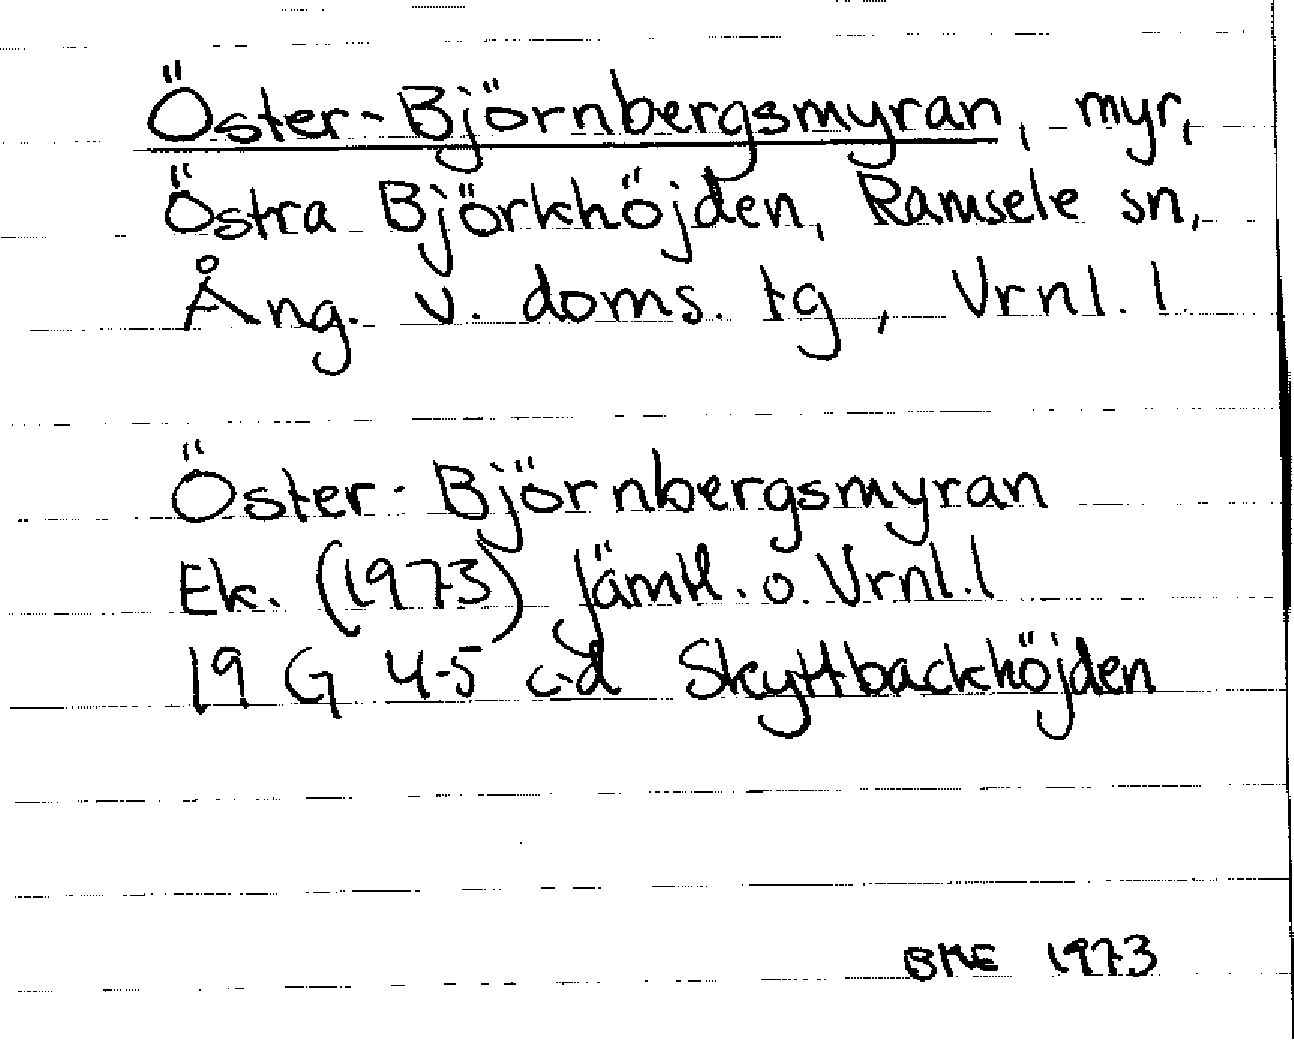 Öster-Björnbergsmyran, myr,
Östra Björkhöjden, Ramsele sn,
Ång. v. doms. tg, Vrnl. l
Öster-Björnbergsmyran
Ek. (1973) Jämtl. o. Vrnl. l
19 G 4-5 c-d Skyttbackhöjden
BME 1973